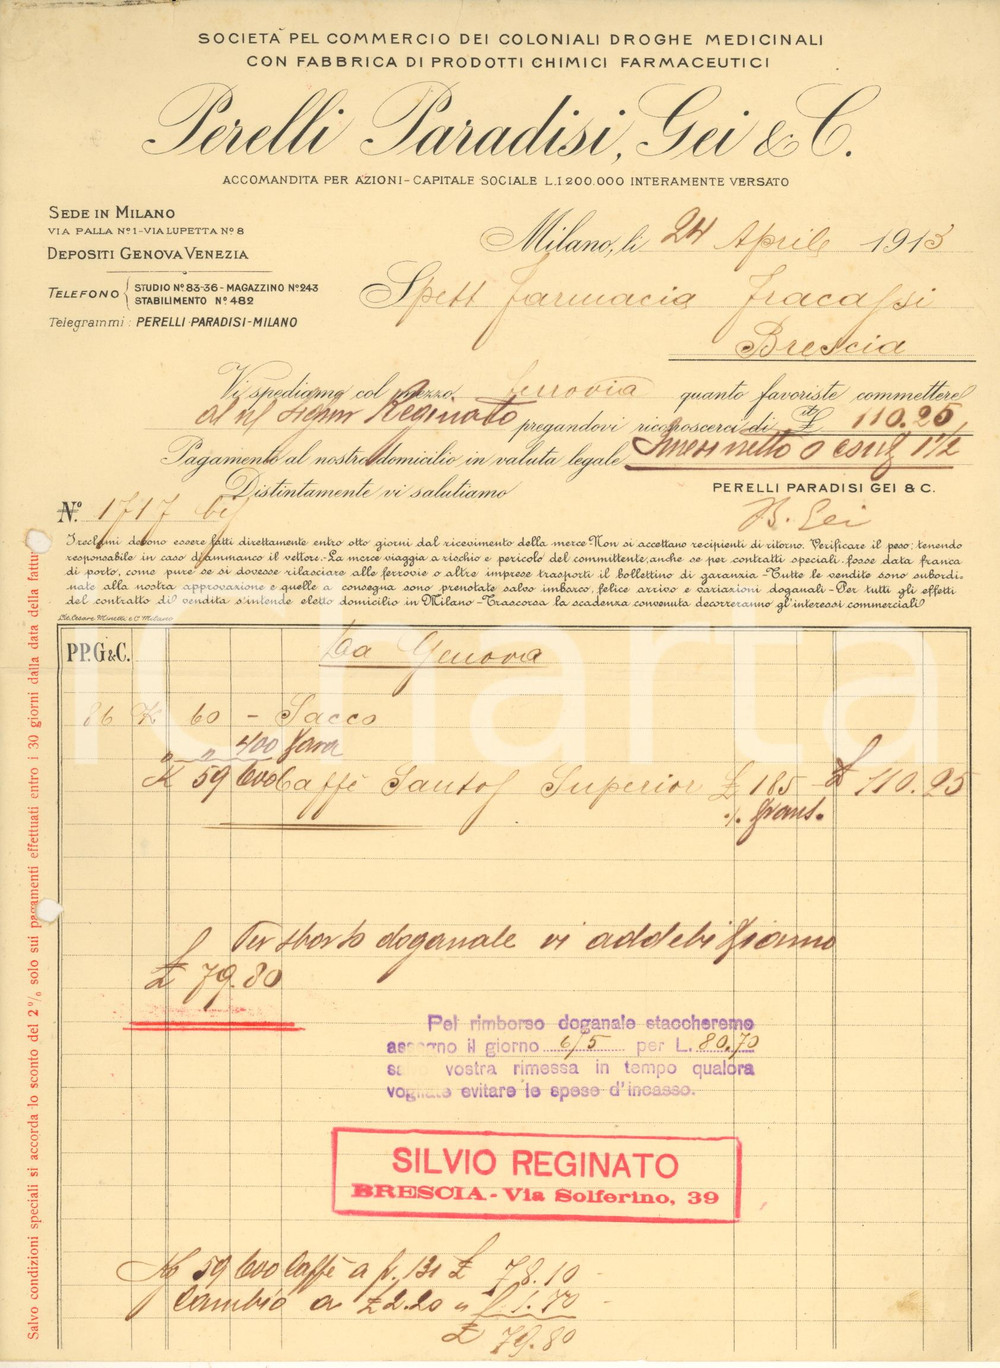 SOCIETÀ PEL COMMERCIO DEI COLONIALI DROGHE MEDICINALI
CON FABBRICA DI PRODOTTI CHIMICI FARMACEUTICI
Perelli Paradisi, Gei & C.
ACCOMANDITA PER AZIONI - CAPITALE SOCIALE L.1200.000 INTERAMENTE VERSATO
SEDE IN MILANO
VIA PALLA Nº 1 - VIA LUPETTA Nº 8
DEPOSITI GENOVA VENEZIA
TELEFONO STUDIO Nº 83-36 - MAGAZZINO Nº 243
STABILIMENTO Nº 482
Telegrammi: PERELLI-PARADISI-MILANO
Milano, li 24 Aprile 1913
Spett Farmacia Fracassi
Brescia
Vi spediamo col mezzo ferrovia quanto favoriste commettere
al n/ Signor Reginato pregandovi riconoscerci di it £ 110.25
Pagamento al nostro domicilio in valuta legale 3 mesi netto o 1½
Distintamente vi salutiamo
PERELLI PARADISI GEI & C.
B. Gei
Nº 1717 bis
I reclami devono essere fatti direttamente entro otto giorni dal ricevimento della merce. Non si accettano recipienti di ritorno. Verificare il peso; tenendo
responsabile in caso d'ammanco il vettore. - La merce viaggia a rischio e pericolo del committente, anche se per contratti speciali fosse data franca
di porto, come pure se si dovesse rilasciare alle ferrovie o altre imprese trasporti il bollettino di garanzia - Tutte le vendite sono subordi-
nate alla nostra approvazione e quelle a consegna sono prenotate salvo imbarco, felice arrivo e variazioni doganali - Per tutti gli effetti
del contratto di vendita s'intende eletto domicilio in Milano - Trascorsa la scadenza convenuta decorreranno gl'interessi commerciali
Lit. Cesare Morelli e C. Milano
PP.G&C.
Da Genova
86 K 60 - Sacco
" " 400 tara
K 59 600 Caffè Santos Superior £ 185 £ 110.25
% Frans.
Per sborso doganale vi addebitiamo
£ 79.80
Pel rimborso doganale staccheremo
assegno il giorno 6/5 per L. 80.70
salvo vostra rimessa in tempo qualora
vogliate evitare le spese d'incasso.
SILVIO REGINATO
BRESCIA - Via Solferino, 39
K 59 600 Caffè a f. 131 £ 78.10
Cambio a £ 2.20 " 1.70
£ 79.80
Salvo condizioni speciali si accorda lo sconto del 2% solo sui pagamenti effettuati entro i 30 giorni dalla data della fattura
icharta